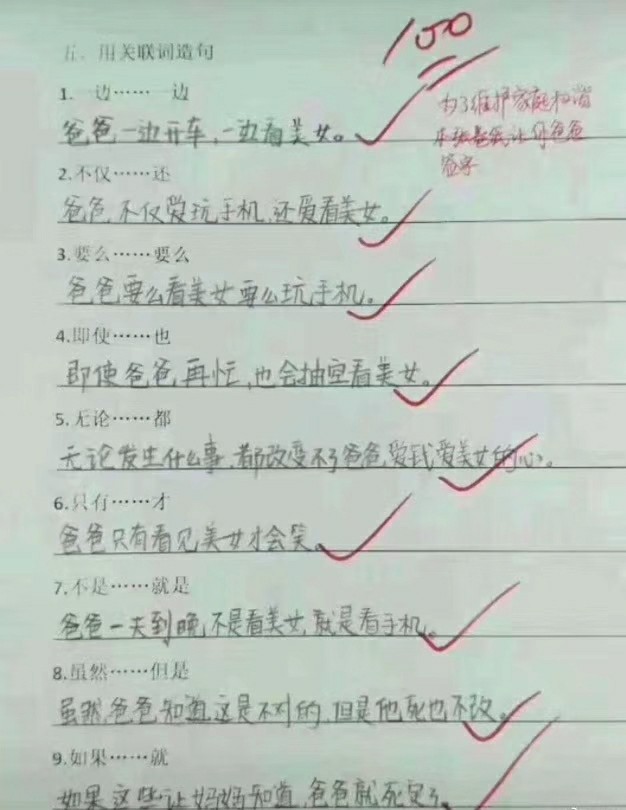 100
五、用关联词造句
为了维护家庭和谐
本张卷纸让你爸爸
签字
1.一边……一边
爸爸一边开车，一边看美女。
2.不仅……还
爸爸不仅爱玩手机，还爱看美女。
3.要么……要么
爸爸要么看美女要么玩手机。
4.即使……也
即使爸爸再忙，也会抽空看美女。
5.无论……都
无论发生什么事，都改变不了爸爸爱钱爱美女的心。
6.只有……才
爸爸只有看见美女才会笑。
7.不是……就是
爸爸一天到晚不是看美女，就是看手机。
8.虽然……但是
虽然爸爸知道这是不对的，但是他死也不改。
9.如果……就
如果这些让妈妈知道，爸爸就死定了。